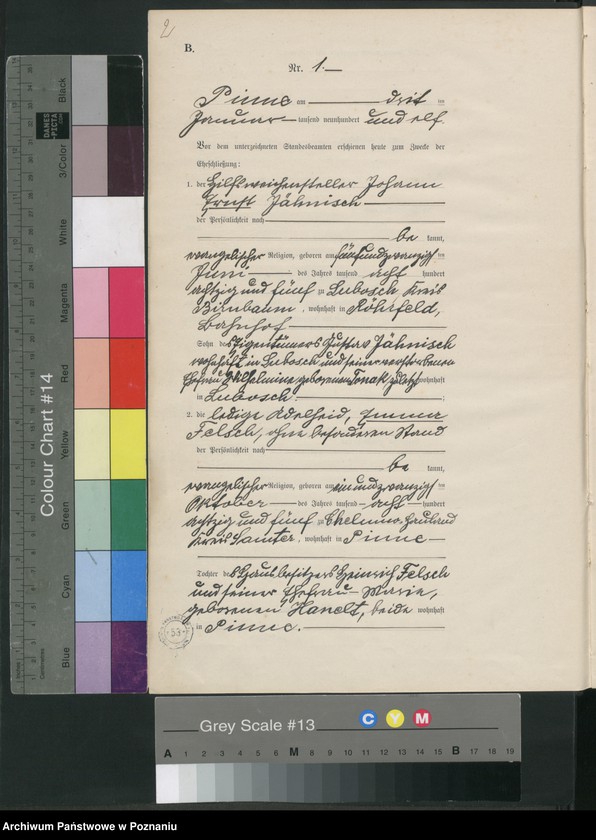 2
B.
Nr. 1.
Pinne am drit ten
Januar tausend neunhundert und elf.
Vor dem unterzeichneten Standesbeamten erschienen heute zum Zwecke der
Eheschließung:
1. der Hilfsweichensteller Johann
Ernst Jähnisch
der Persönlichkeit nach
be kannt,
evangelischer Religion, geboren am fünfundzwanzigs ten
Juni des Jahres tausend acht hundert
achtzig und fünf zu Lubosch Kreis
Birnbaum, wohnhaft in Röhrfeld,
Bahnhof
Sohn des Eigentümers Gustav Jähnisch
wohnhaft in Lubosch und seiner verstorbenen
Ehefrau Wilhelmine geborenen zuletzt wohnhaft
in Lubosch.
2. die ledige Adelheid, Emma
Felsch, ohne besonderen Stand
der Persönlichkeit nach
be kannt,
evangelischer Religion, geboren am einundzwanzigs ten
Oktober des Jahres tausend acht hundert
achtzig und fünf zu Chelmno, Hauland
Kreis Samter, wohnhaft in Pinne
Tochter des Hausbesitzers Heinrich Felsch
und seiner Ehefrau Marie,
geborenen Hanelt, beide wohnhaft
in Pinne.
53
DANES
PICTA
Colour Chart #14
Black
3/Color
White
Magenta
Red
Yellow
Green
Cyan
Blue
Grey Scale #13
C Y M
A 1 2 3 4 5 6 M 8 9 10 11 12 13 14 15 B 17 18 19
Archiwum Państwowe w Poznaniu